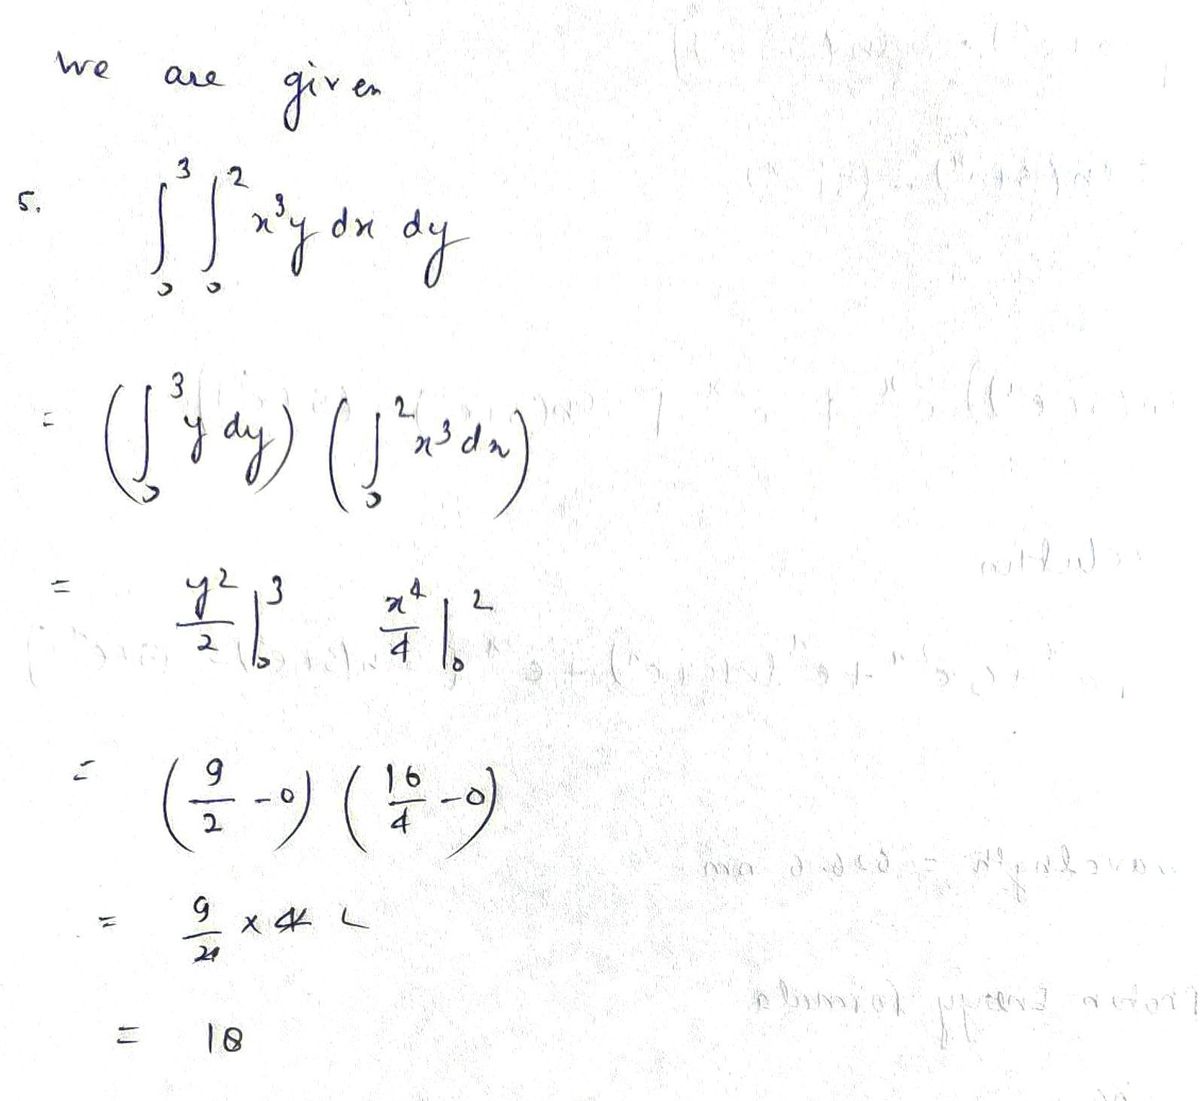 We are given
5. ∫₀³ ∫₀² x³y dx dy
= (∫₀³ y dy) (∫₀² x³ dx)
= y²/2 |₀³ x⁴/4 |₀²
= (9/2 - 0) (16/4 - 0)
= 9/2 × 4 2
= 18